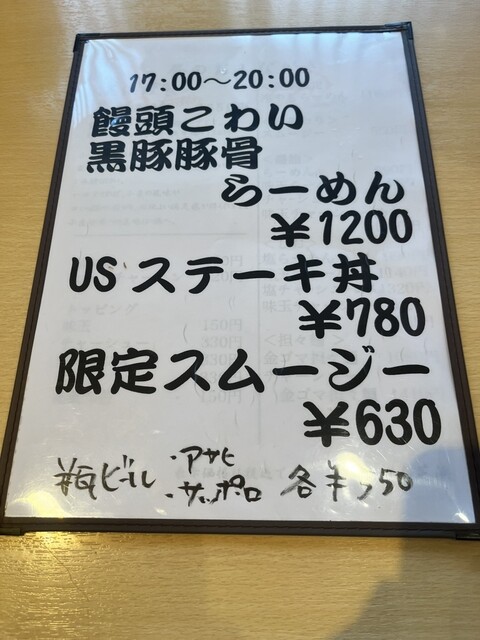 17:00～20:00
饅頭こわい
黒豚豚骨
らーめん
￥1200
US ステーキ丼
￥780
限定スムージー
￥630
瓶ビール ・アサヒ
・サッポロ 各￥550
味玉 150円
330円